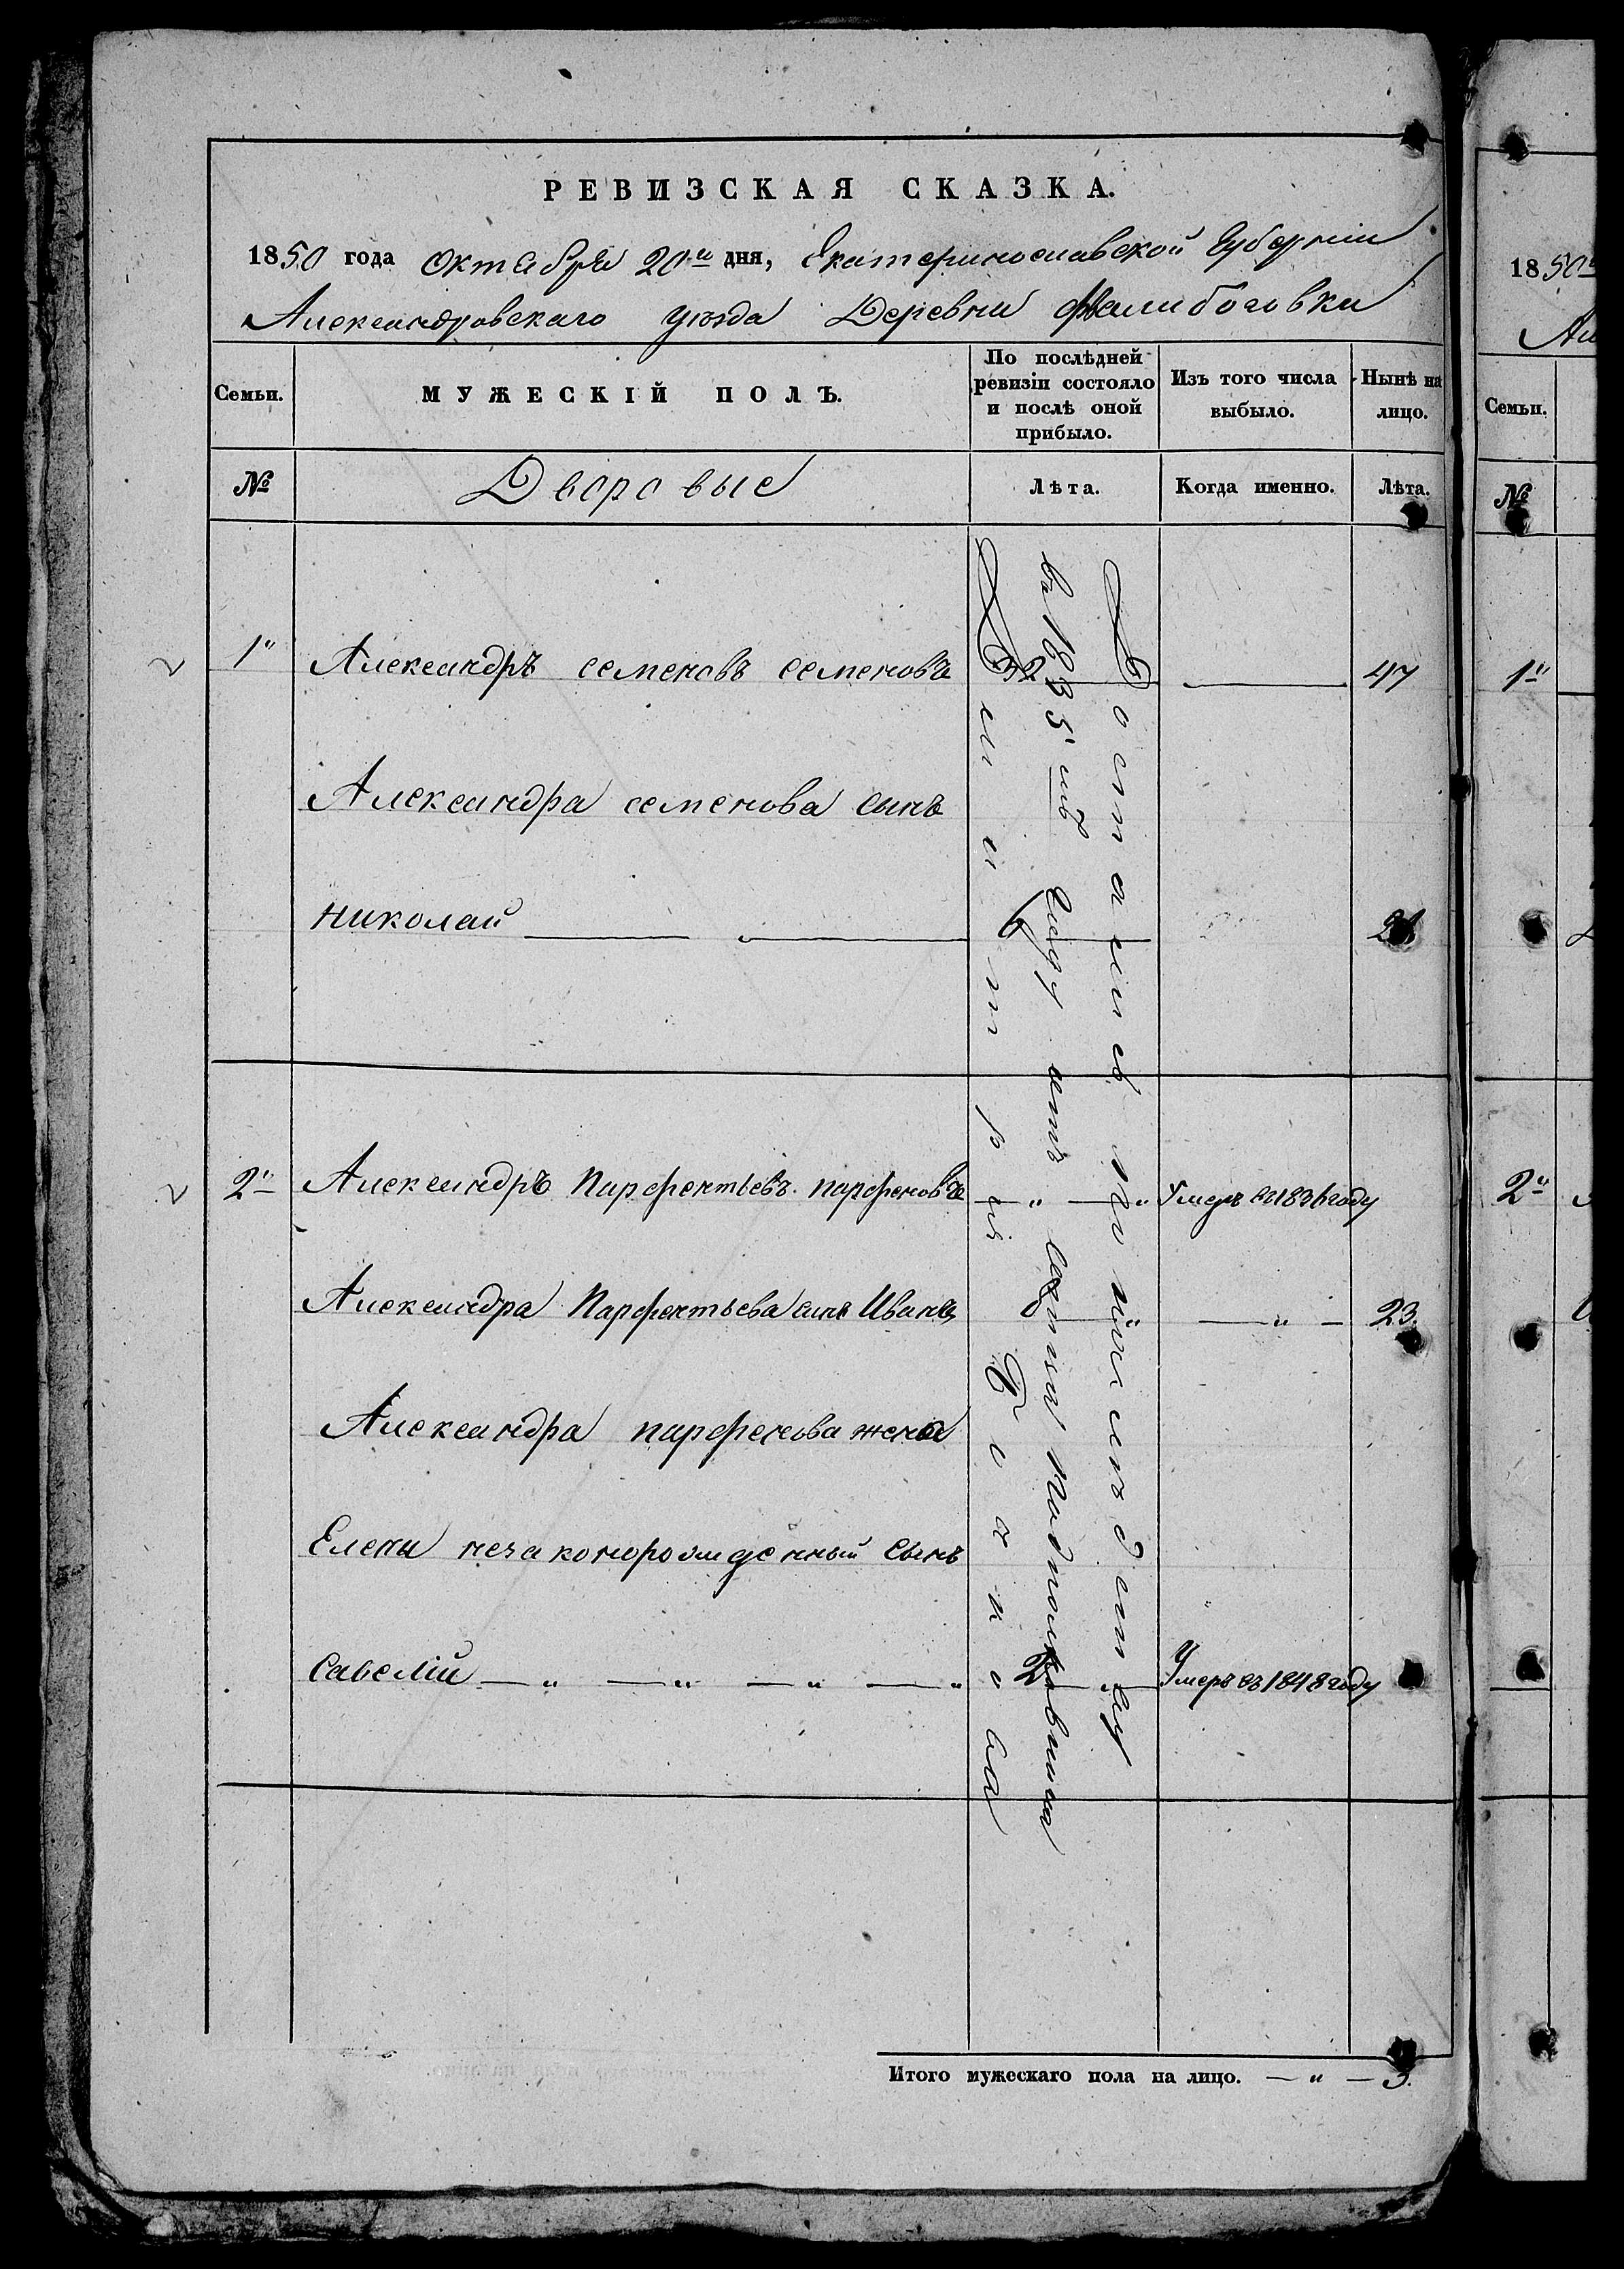 РЕВИЗСКАЯ СКАЗКА.
1850 года Октября 20го дня, Екатеринославской Губерніи
Александровскаго уѣзда Деревни
Семьи.
МУЖЕСКІЙ ПОЛЪ.
По послѣдней ревизіи состояло и послѣ оной прибыло.
Изъ того числа выбыло.
Нынѣ на лицо.
№
Дворовые
Лѣта.
Когда именно.
Лѣта.
1й
Александръ семеновъ семеновъ
32
47
Александра семенова сынъ
Николай
6
2й
Александръ Парфентьевъ парфеновъ
Умеръ въ 1836 году
Александра Парфентьева сынъ Иванъ
8
23.
Александра парфенова жена
Елены незаконорожденный сынъ
Савелій — „ — „ — „ — „
2
Умеръ въ 1848 году
Достались по наслѣдству
въ 1835мъ году отъ отца Подполковника
Дмитрія
Итого мужескаго пола на лицо. — „ — 3.
1850
Ал
Семьи.
№
1й
2й